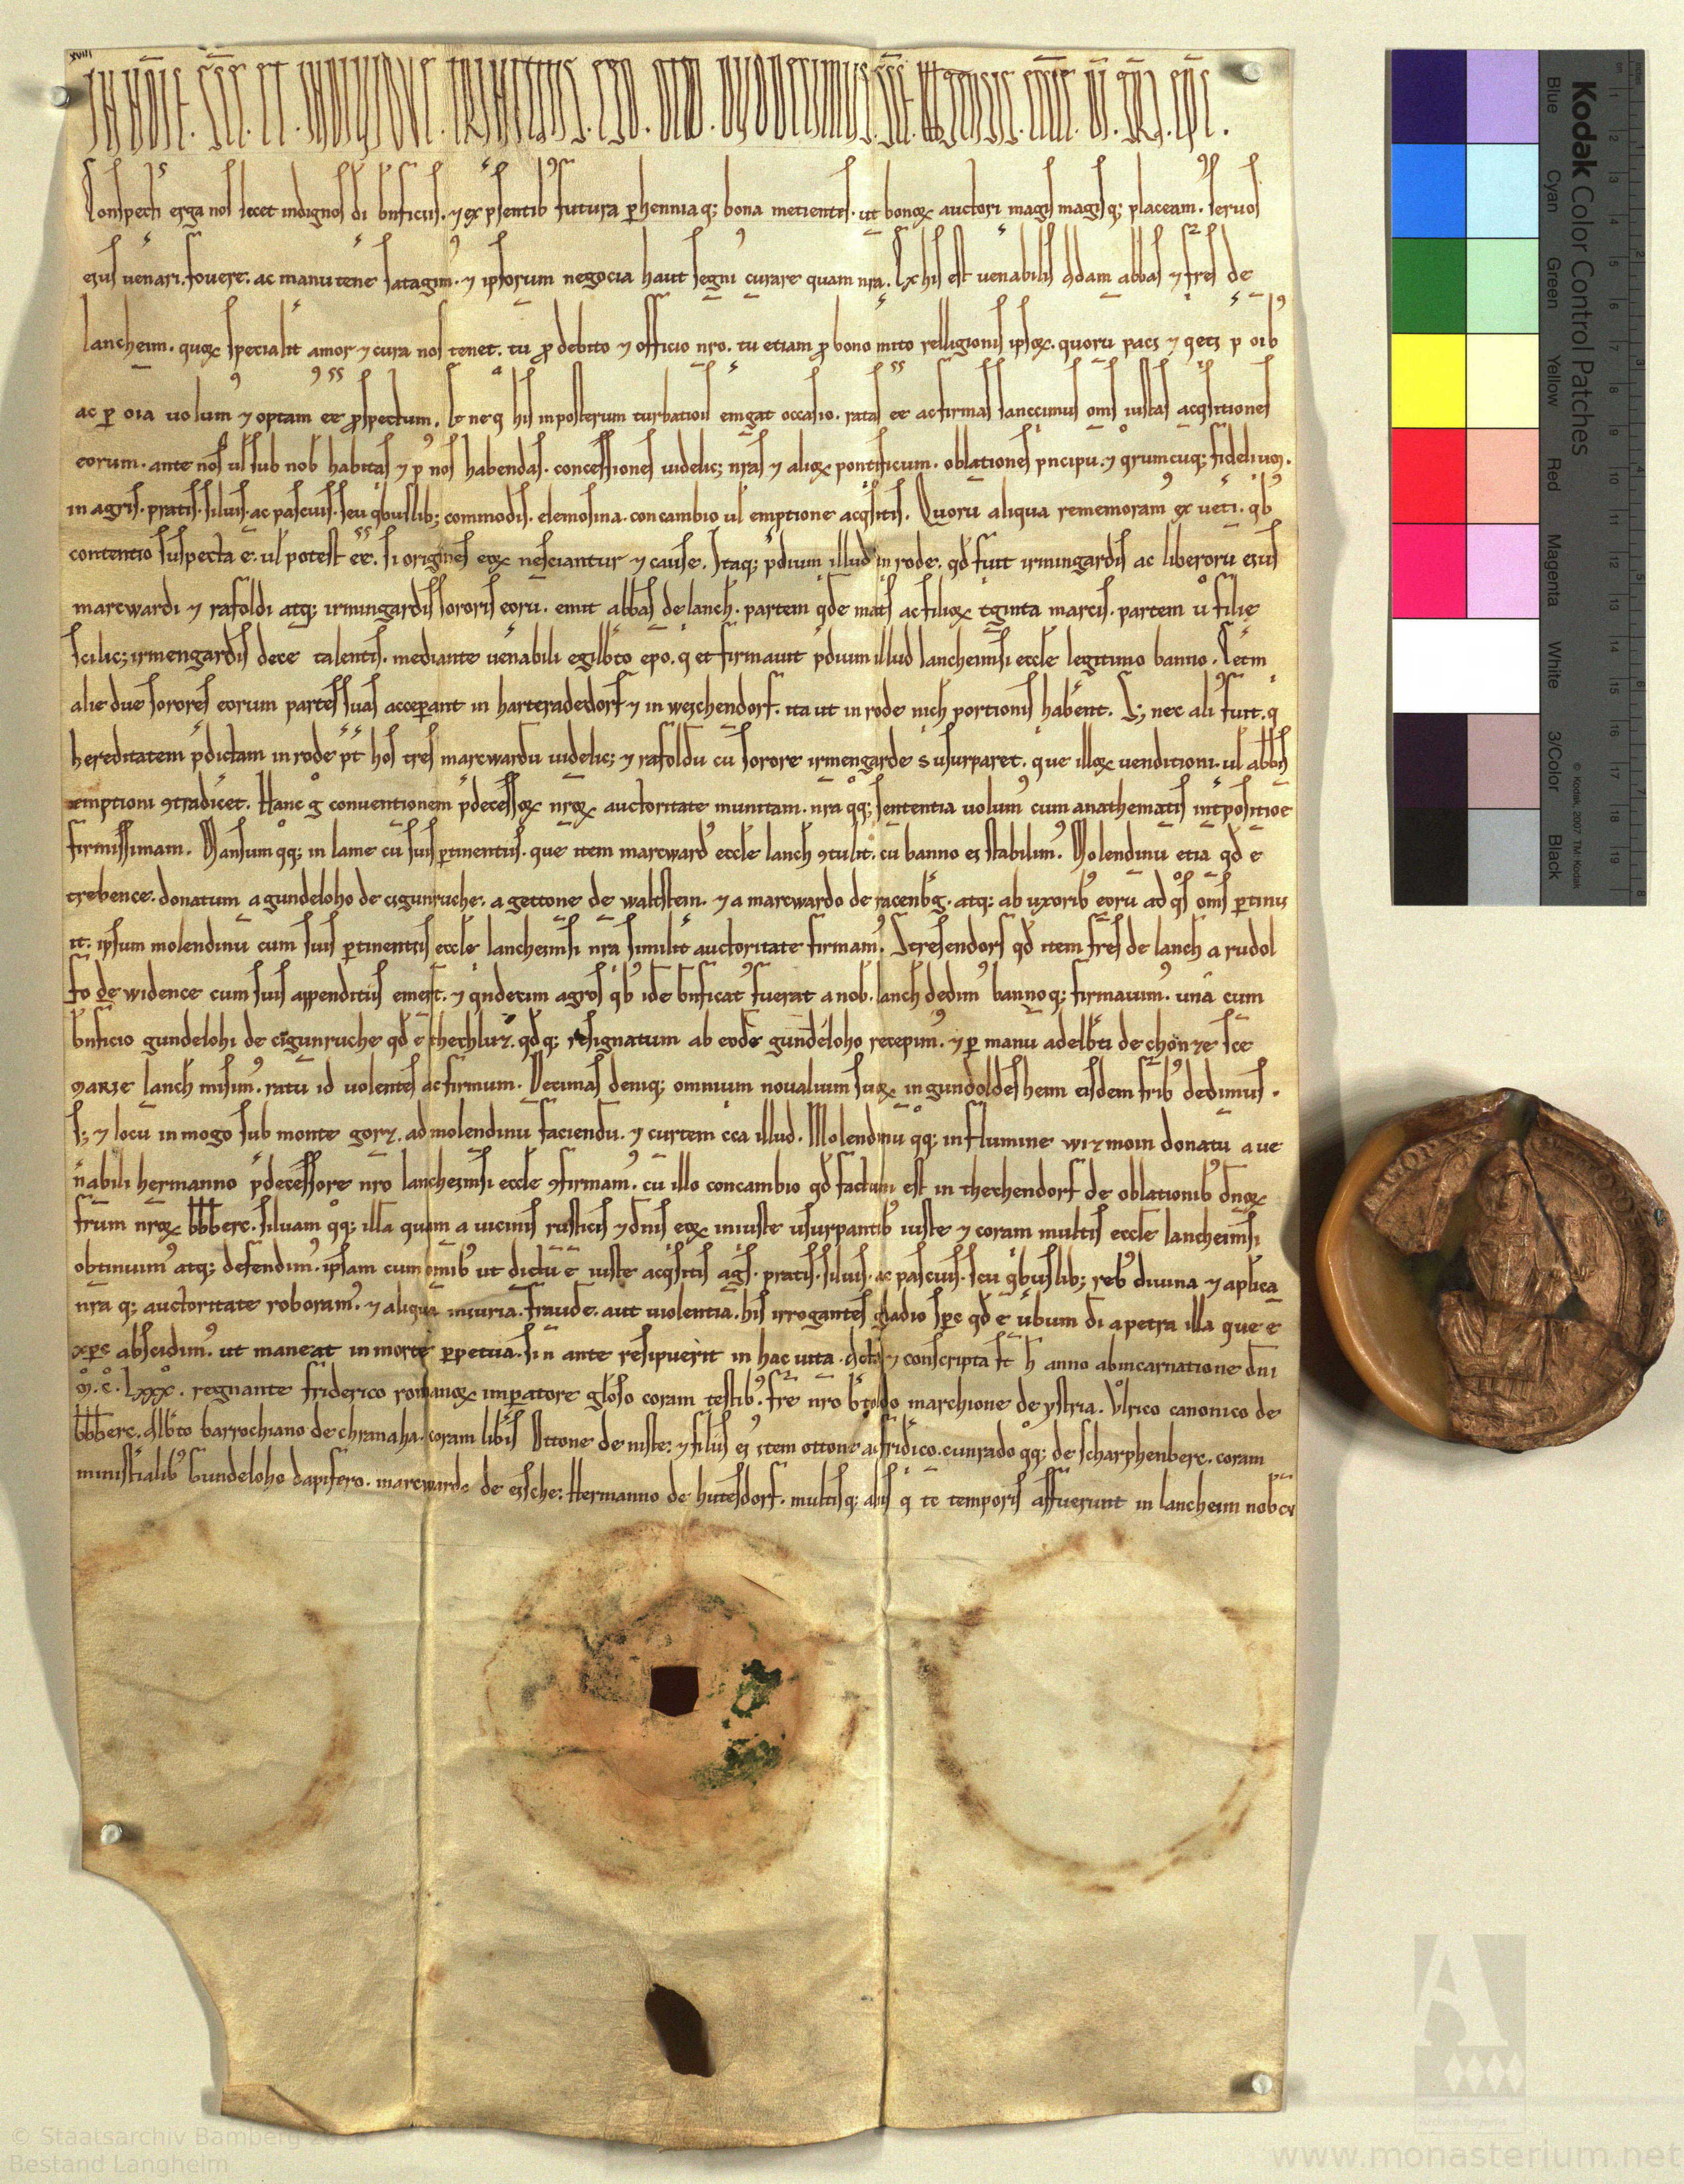 XVIII
IN NOIE. SCE. ET. INDIVIDUE. TRINITATIS. EGO. OTTO. EPS.
Conspecti erga nos licet indignos di bnficiis. ⁊ ex psentib futura phenniaq; bona metientes. ut bonoꝝ auctori magis magisq; placeam. seruos
eius uenari. fouere. ac manu tene satagim. ⁊ ipsorum negocia haut segni curare quam nra. Ex his est uenabilis adam abbas ⁊ fres de
lancheim. quoꝝ specialit amor ⁊ cura nos tenet. tu p debito ⁊ officio nro. tu etiam p bono mito relligionis ipsoꝝ. quoru paci ⁊ qeti p oib
ac p oia uolum ⁊ optam ee pspectum. Et ne q his inposterum turbationis emgat occasio. ratas ee ac firmas sanccimus oms iustas acqsitiones
eorum. ante nos ul sub nob habitas ⁊ p nos habendas. concessiones uidelic; nras ⁊ alioꝝ pontificum. oblationes pncipu. ⁊ qrumcuq; fidelium.
in agris. pratis. siluis. ac pascuis. seu qbuslib; commodis. elemosina. concambio ul emptione acqsitis. Quoru aliqua rememoram ex ueti. qb
contentio suspecta e. ul potest ee. si origines eoꝝ nesciantur ⁊ cause. Itaq; pdium illud in rode. qd fuit irmingardis ac liberoru eius
marcwardi ⁊ rafoldi atq; irmingardis sororis eoru. emit abbas de lanch. partem qde matis ac filioꝝ tginta marcis. partem u filie
scilic; irmengardis dece talentis. mediante uenabili egilbto epo. q et firmauit pdium illud lancheimsi eccle legitimo banno. Cetm
alie due sorores eorum partes suas acceperant in harteradedorf ⁊ in weischendorf. ita ut in rode nich portionis haberent. S; nec ali fuit. q
hereditatem pdictam in rode pt hos tres marcwardu uidelic; ⁊ rafoldu cu sorore irmengarde s usurparet. que illoꝝ uenditioni. ul abbis
emptioni ꝯtradicet. Hanc g conuentionem pdecessoꝝ nroꝝ auctoritate munitam. nra qq; sententia uolum cum anathematis intpositioe
firmissimam. Mansum qq; in lame cu suis ptinentiis. que item marcward eccle lanch ꝯtulit. cu banno ei stabilim. Molendinu etia qd e
trebence. donatum a gundeloho de cigunruche. a gettone de waltstein. ⁊ a marcwardo de racenbg. atq; ab uxorib eoru ad qs oms ptinu
it. ipsum molendinu cum suis ptinentiis eccle lancheimsi nra similit auctoritate firmam. Stresendorf qd item fres de lanch a rudol
fo de widence cum suis appenditiis emert. ⁊ qndecim agros qb ide bnficat fuerat a nob. lanch dedim bannoq; firmauim. una cum
bnficio gundelohi de cigunruche qd e thechluz. qdq; resignatum ab eode gundeloho recepim. ⁊ p manu adelbti de chonze sce
marie lanch misim. ratu id uolentes ac firmum. Decimas deniq; omnium noualium suoꝝ in gundoldesheim eisdem frib dedimus.
S; ⁊ locu in mogo sub monte gorz. ad molendinu faciendu. ⁊ curtem cca illud. Molendinu qq; in flumine wizmoin donatu a ue
nabili hermanno pdecessore nro lancheimsi eccle ꝯfirmam. cu illo concambio qd factum est in thechendorf de oblationib dnoꝝ
frum nroꝝ bbbere. siluam qq; illa quam a uicinis rusticis ⁊ dnis eoꝝ iniuste usurpantib iuste ⁊ coram multis eccle lancheimsi
obtinuim atq; defendim. ipsam cum omib ut dictu e iuste acqsitis agis. pratis. siluis. ac pascuis. seu qbuslib; reb diuina ⁊ aplica
nra q; auctoritate roboram. ⁊ aliqua iniuria. fraude. aut uiolentia. his irrogantes gladio spc qd e ubum di a petra illa que e
xpc abscidim. ut maneat in morte ppetua. si n ante resipuerit in hac uita. Acta ⁊ conscripta st h anno abincarnatione dni
M. C. LXXX. regnante friderico romanoꝝ impatore glioso coram testib. fre nro btoldo marchione de ystria. Vlrico canonico de
bbberc. Albto barrochiano de chranaha. coram libis Ottone de niste: ⁊ filiis ei item ottone ac fridico. cunrado qq; de scharphenberc. coram
ministialib Gundeloho dapifero. marcwardo de eische: Hermanno de hutesdorf. multisq; aliis q tc temporis affuerunt in lancheim nobcu
Kodak Color Control Patches
Blue Cyan Green Yellow Red Magenta White 3/Color Black
© Kodak, 2007 TM: Kodak
© Staatsarchiv Bamberg
Bestand Langheim
www.monasterium.net